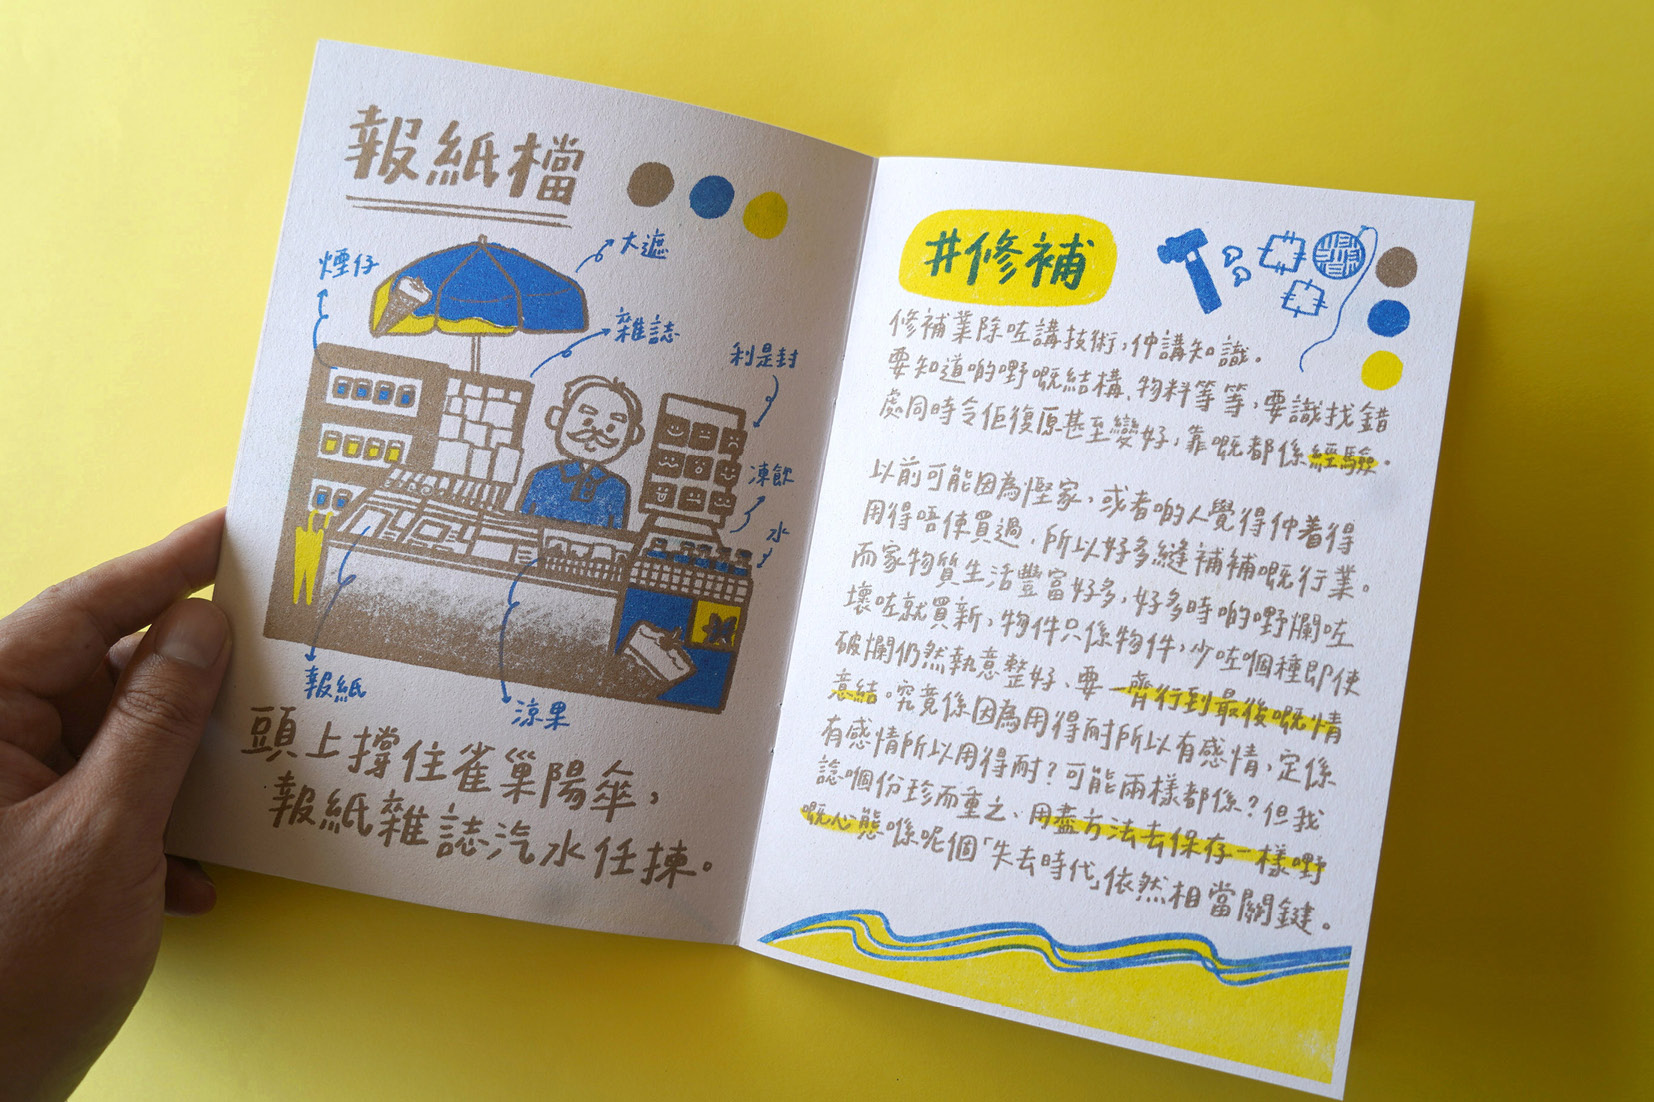 報紙檔
大遮
煙仔
雜誌
利是封
凍飲
水
報紙
涼果
頭上撐住雀巢陽傘，
報紙雜誌汽水任揀。
#修補
修補業除咗講技術，仲講知識。
要知道啲嘢嘅結構、物料等等，要識找錯
處同時令佢復原甚至變好，靠嘅都係經驗。
以前可能因為慳家，或者啲人覺得仲着得
用得唔使買過，所以好多縫補補嘅行業。
而家物質生活豐富好多，好多時啲嘢爛咗
壞咗就買新，物件只係物件，少咗嗰種即使
破爛仍然執意整好、要一齊行到最後嘅情
意結。究竟係因為用得耐所以有感情，定係
有感情所以用得耐？可能兩樣都係？但我
諗嗰份珍而重之、用盡方法去保存一樣嘢
嘅心態喺呢個「失去時代」依然相當關鍵。